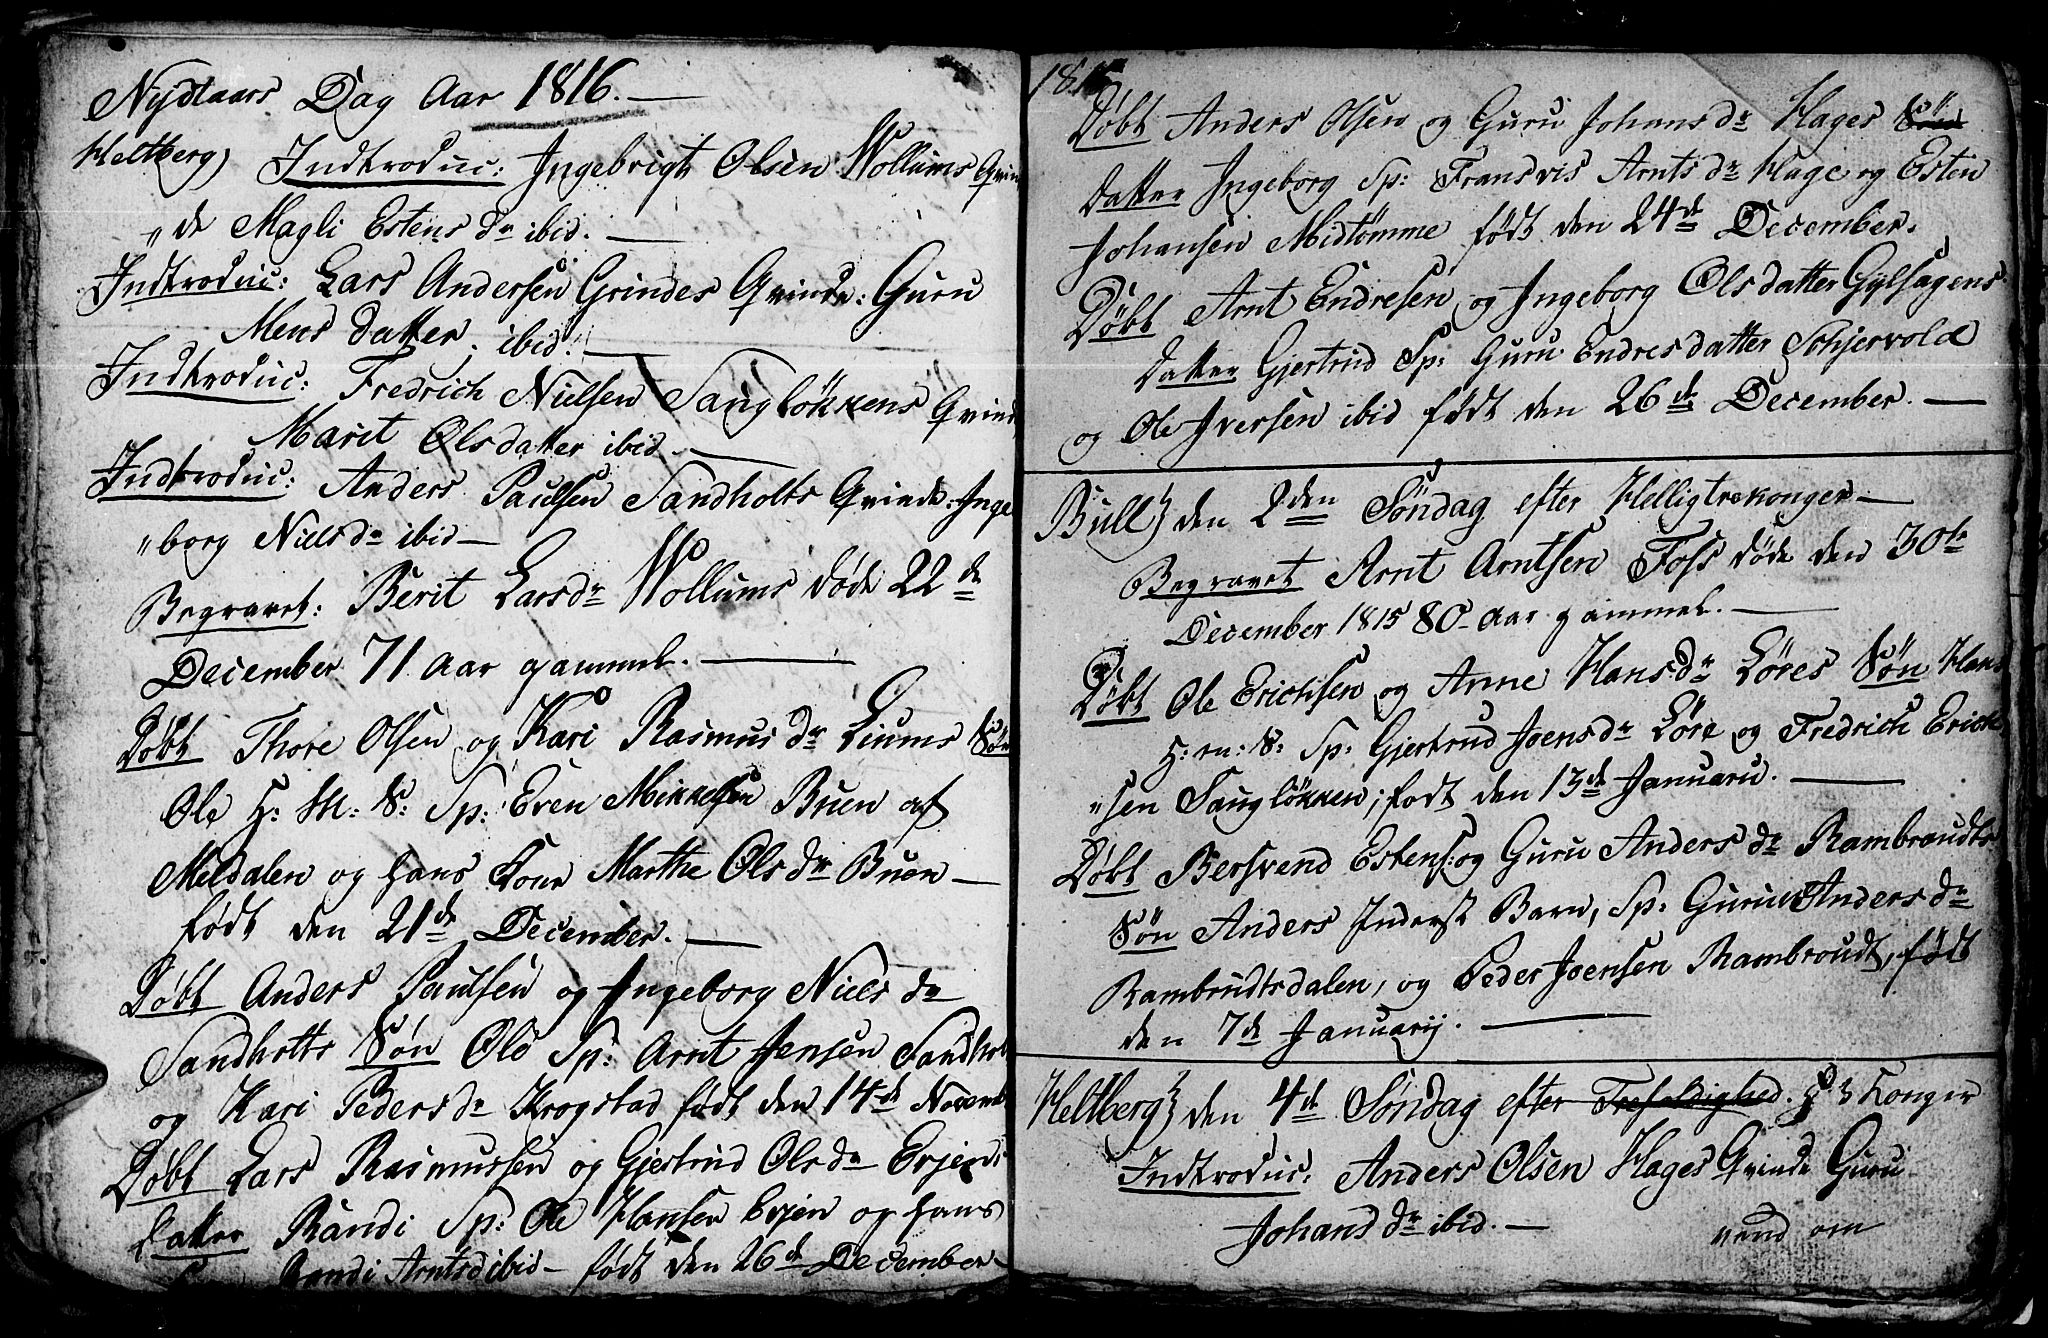 Nydtaars Dag Aar 1816. —
Heltberg) Indtroduc: Ingebrigt Olsen Wollums Qvin
"de Magli Estens dr ibid. —
Indtroduc: Lars Andersen Grindes Qvinde: Guru
Mens datter. ibid. —
Indtroduc: Fredrich Nielsen Saugløkkens Qvind
Marit Olsdatter ibid. —
Indtroduc: Anders Paulsen Sandholts Qvinde: Inge
"borg Niels dr ibid —
Begravet: Berit Larsdr Wollums døde 22de
December 71 Aar gammel. —
Døbt Thore Olsen og Kari Rasmus dr Liums Søn
Ole H: M: S: Sp: Even Mikkelsen Buen af
Meldalen og hans Kone Marthe Ols dr Buen —
født den 21de December. —
Døbt Anders Paulsen og Ingeborg Niels dr
Sandholts Søn Ole Sp: Arnt Jensen Sandhol
og Kari Peders dr Krogstad født den 14de Novemb
Døbt Lars Rasmussen og Gjertrud Ols dr Evjens
Datter Randi Sp: Ole Hansen Evjen og hans
Randi Arntsd ibid — født den 26de December —
1816
Døbt Anders Olsen og Guru Johans dr Hages Søn
Datter Ingeborg Sp: Fransvis Arnts dr Hage og Esten
Johansen Midtømme født den 24de December.
Døbt Arnt Endresen og Ingeborg Ols datter Gylhagens
Datter Gjertrud Sp: Guru Endresdatter Schjervold
og Ole Iversen ibid født den 26de December. —
Bull} den 2den Søndag efter Helligtrekonger —
Begravet Arnt Arntsen Foss døde den 30te
December 1815 80 Aar gammel. —
Døbt Ole Erichsen og Anne Hansdr Løres Søn Hans
H: m: S: Sp: Gjertrud Joensdr Løre og Fredrich Erich
"sen Saugløkken; født den 13de Januaru. —
Døbt Bersvend Estens: og Guru Anders dr Rambraudts
Søn Anders Inderst Barn, Sp: Guru Anders dr
Rambrudtsdalen, og Peder Joensen Rambroudt, født
den 7de Januarij. —
Heltberg} den 4de Søndag efter Trefoldighed. H 3 Konger
Indtroduc: Anders Olsen Hages Qvinde Guru
Johans dr ibid. —
vend om